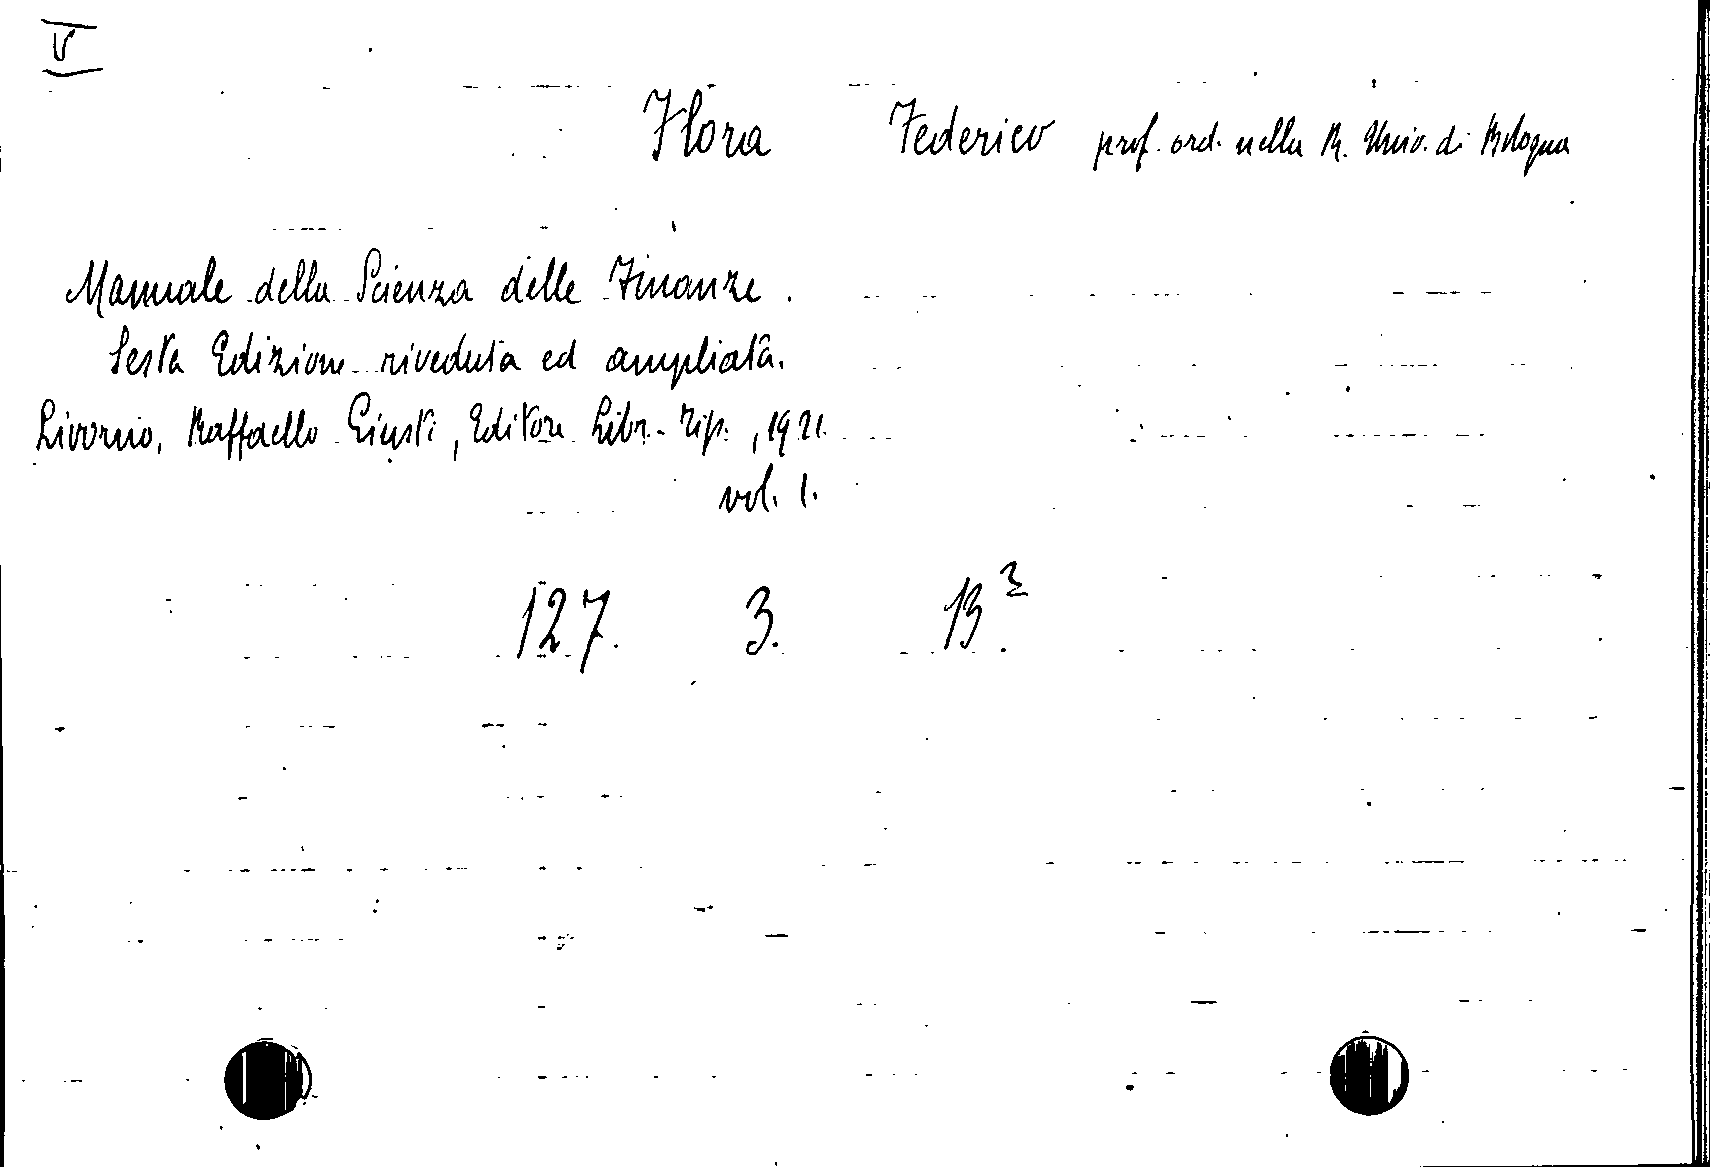 V
Flora Federico prof. ord. nella R. Univ. di Bologna
Manuale della Scienza delle Finanze.
Sesta Edizione riveduta ed ampliata.
Livorno, Raffaello Giusti, Editore Libr.-Tip., 1921.
vol. 1.
127. 3. B³.